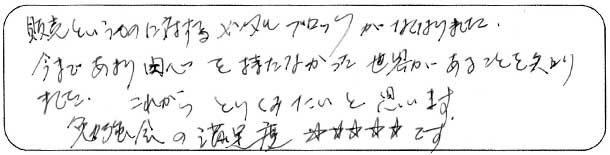 販売というものに対するメンタルブロックがなくなりました。
今まであまり関心を持たなかった世界があることを知り
ました。これからとりくみたいと思います。
勉強会の満足度 ☆☆☆☆☆ です